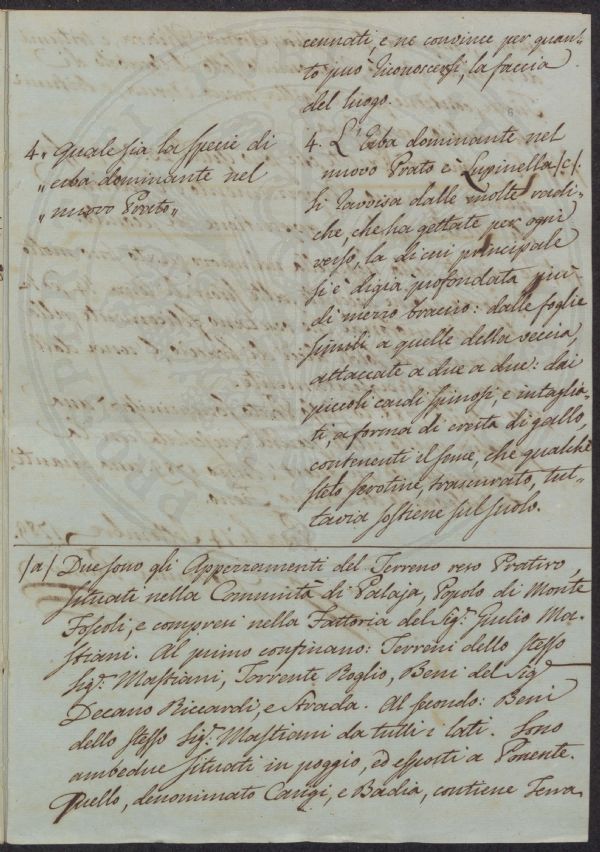 cennati, e ne convince per quan-
to può riconoscersi, la faccia
del luogo.
6
4. Quale sia la specie di
„ erba dominante nel
„ nuovo Prato „
4. L'Erba dominante nel
nuovo Prato è Lupinella /c/.
Si ravvisa dalle molte radi-
che, che ha gettate per ogni
verso, la di cui principale
si è digià profondata più
di mezzo braccio: dalle foglie
simili a quelle della veccia,
attaccate a due a due: dai
piccoli cardi spinosi, e intaglia-
ti, a forma di cresta di gallo,
contenenti il seme, che qualche
stelo serotine, trascurato, tut-
tavia sostiene sul suolo.
/a/ Due sono gli Appezzamenti del Terreno reso Prativo,
situati nella Comunità di Palaja, Popolo di Monte
Foscoli, e compresi nella Fattoria del Sig.r Giulio Ma-
stiani. Al primo confinano: Terreni dello stesso
Sig.r Mastiani, Torrente Roglio, Beni del Sig.r
Decano Riccardi, e Strada. Al secondo: Beni
dello stesso Sig.r Mastiani da tutti i lati. Sono
ambedue situati in poggio, ed esposti a Ponente.
Quello, denominato Cangi, e Badia, contiene Terra